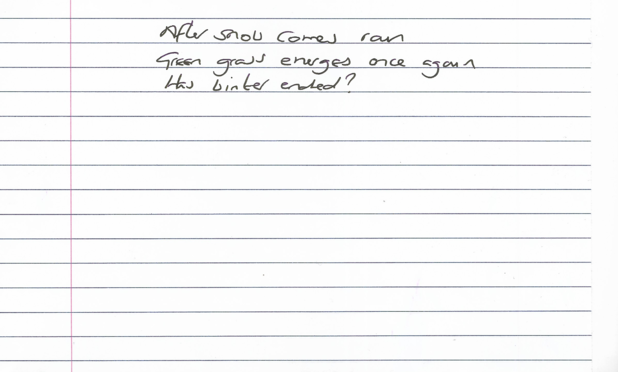 After snow comes rain
Green grass emerges once again
Has winter ended?